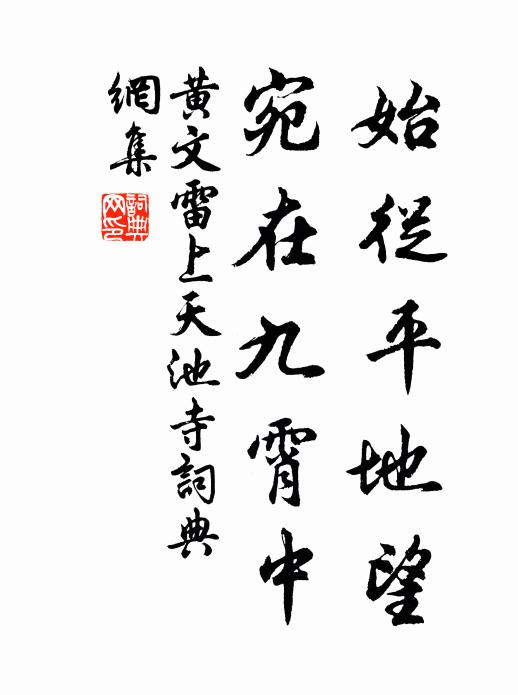 始從平地望
宛在九霄中
黄文雷上天池寺詞典
網集
詞典
网印